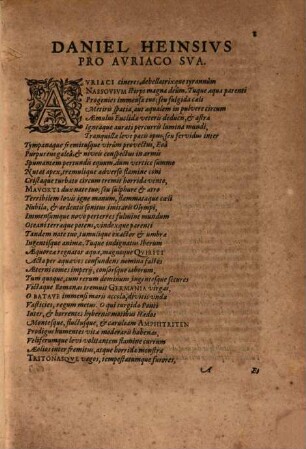 DANIEL HEINSIVS
PRO AVRIACO SVA.
AVRIACI cineres, debellatrixque tyrannûm
NASSOVIVM stirps magna deûm. Tuque aqua parenti
Progenies immensa tuo: seu fulgida cæli
Metiris spatia, aut aqualem in pulvere circum
Æmulus Euclidæ veteri deducis, & astra
Igneaque aurati percurris lumina mundi,
Tranquillæ levis pacis opus; seu fervidus inter
Tympanaque fremitusque virûm provectus, Eoâ
Purpureus galeâ, & niveo conspectus in armis
Spumantem perfundis equum, dum vertice summo
Nutat apex, tremulique adverso flamine coni
Cristaque turbatæ circum tremit horrida venti,
MAVORTI dux nate tuo, seu sulphure & ære
Terribilem Iovis igne manum, flammasque cæli
Nubila, & ardentis sentus imitaris Olympi,
Immensemque novo perterres fulmine mundum
Oceani terræque potens, vindexque parentis
Tandem nate tui, iamque exaltor & umbra
Ingentesque animæ. Tuque indignatus Iberum
Æquora regnator aqua, magnoque QVIRITES
Acta per æquoreos confundens numina fastos
Æterni comes imperij, consorsque laborum,
Tum quoque, cum rerum dominam, ingentesque secures
Victaque Romanas tremuit GERMANIA virgas,
O BATAVE immensi maris accola, divite vinclo
Fastities, regum metus. O qui turgida Ponti
Inter, & horrentes hyberni motibus Hædos
Montesque, fluctusque, & cæruleam AMPHITRITEN
Prodigus humentes vitæ moderaris habenas,
Velisternisque levi volitantem flamine currum
Æolios inter fremitus, atque horrida monstra
TRITONASQVE vagos, tempestatumque furores,
A
Et